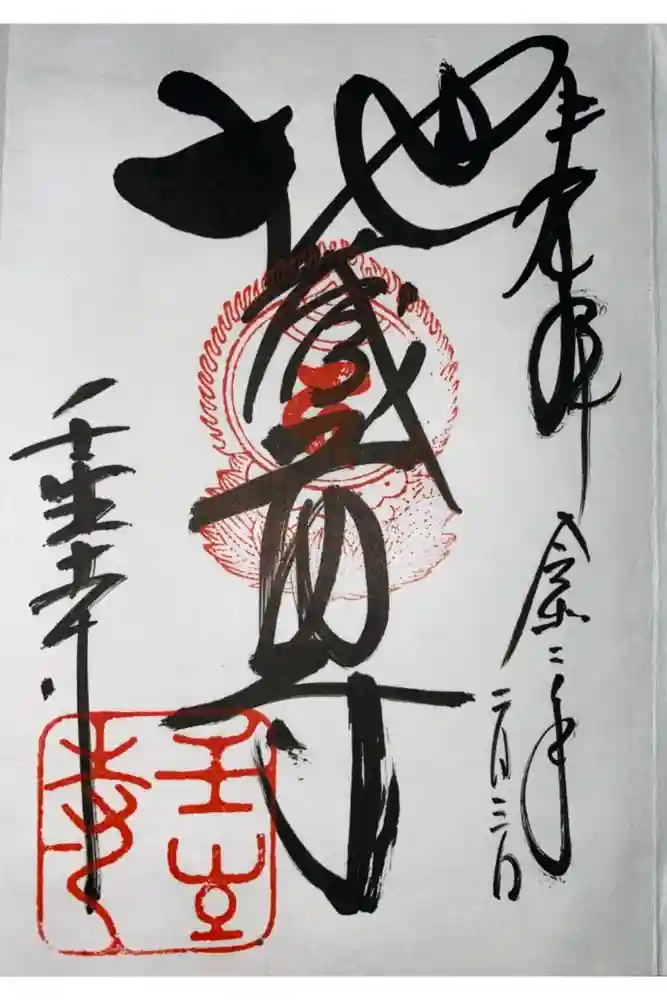 奉拝
令和二年
二月三日
地蔵尊
壬生寺